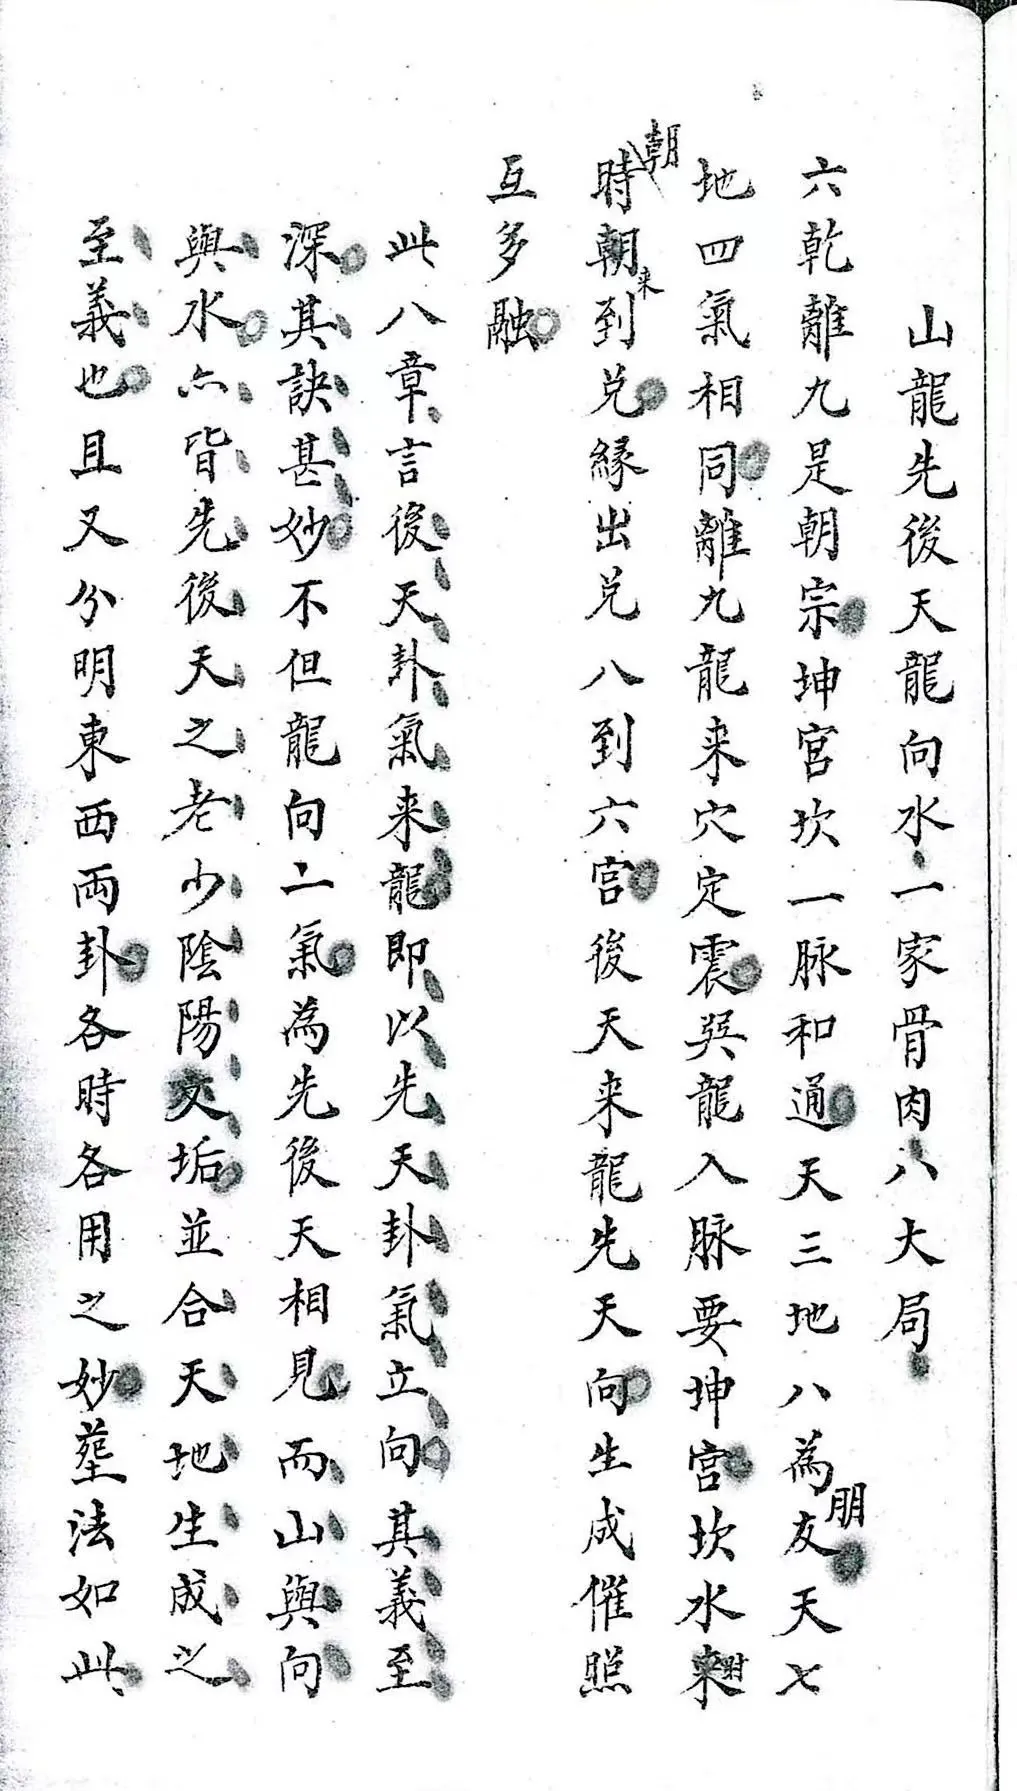 山龍先後天龍向水一家骨肉八大局
六乾離九是朝宗坤宮坎一脉和通天三地八為友朋天七
地四氣相同離九龍来穴定震巽龍入脉要坤宮坎水来时
時朝朝到来兑緣出兑八到六宮後天来龍先天向生成催照
互多融
此八章言後天卦氣来龍即以先天卦氣立向其義至
深其訣甚妙不但龍向二氣為先後天相見而山與向
與水亠皆先後天之老少陰陽交垢並合天地生成之
至義也且又分明東西両卦各時各用之妙塟法如此